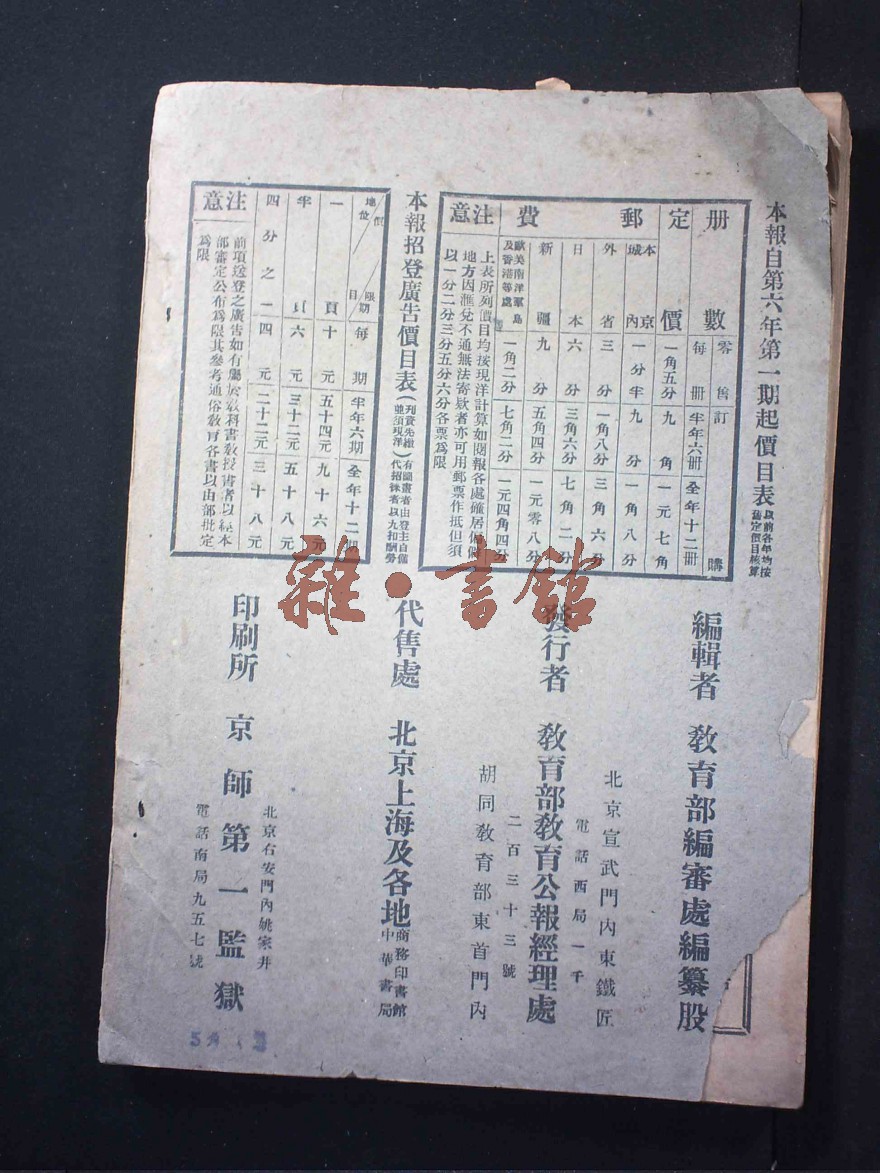 本報自第六年第一期起價目表 以前各年均按舊定價目核算
册數 零售每册 訂購 半年六册 全年十二册
定價 一角五分 九角 一元七角
郵費
本京城內 一分半 九分 一角八分
外省 三分 一角八分 三角六分
日本 六分 三角六分 七角二分
新疆 九分 五角四分 一元零八分
歐美南洋羣島及香港等處 一角二分 七角二分 一元四角四分
注意
上表所列價目均按現洋計算如閱報各處確居偏僻
地方因滙兌不通無法寄欵者亦可用郵票作抵但須
以一分二分三分五分六分各票爲限
本報招登廣告價目表（刊費先繳並須現洋）有圖畫者由登主自備 代招徠者以九扣酬勞
地位 價目 限期 每期 半年六期 全年十二
一頁 十元 五十四元 九十六元
半頁 六元 三十二元 五十八元
四分之一 四元 二十二元 三十八元
注意
前項送登之廣告如有屬於教科書教授書者以經本
部審定公布爲限其參考通俗教育各書以由部批定
爲限
編輯者 教育部編審處編纂股
北京宣武門內東鐵匠
電話西局一千
發行者 教育部教育公報經理處
二百三十三號
胡同教育部東首門內
代售處 北京上海及各地 商務印書館 中華書局
北京右安門內姚家井
印刷所 京師第一監獄
電話南局九五七號
雜·書館